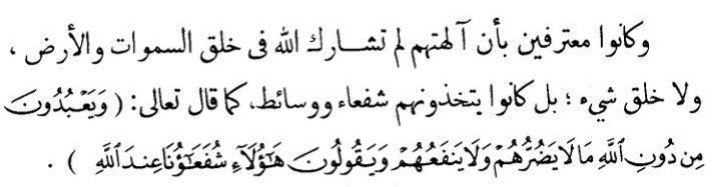 وكانوا معترفين بأن آلهتهم لم تشارك الله فى خلق السموات والأرض ،
ولا خلق شىء ؛ بل كانوا يتخذونهم شفعاء ووسائط، كما قال تعالى: ( وَيَعْبُدُونَ
مِن دُونِ ٱللَّهِ مَا لَا يَضُرُّهُمْ وَلَا يَنفَعُهُمْ وَيَقُولُونَ هَٰٓؤُلَآءِ شُفَعَٰٓؤُنَا عِندَ ٱللَّهِ ) .